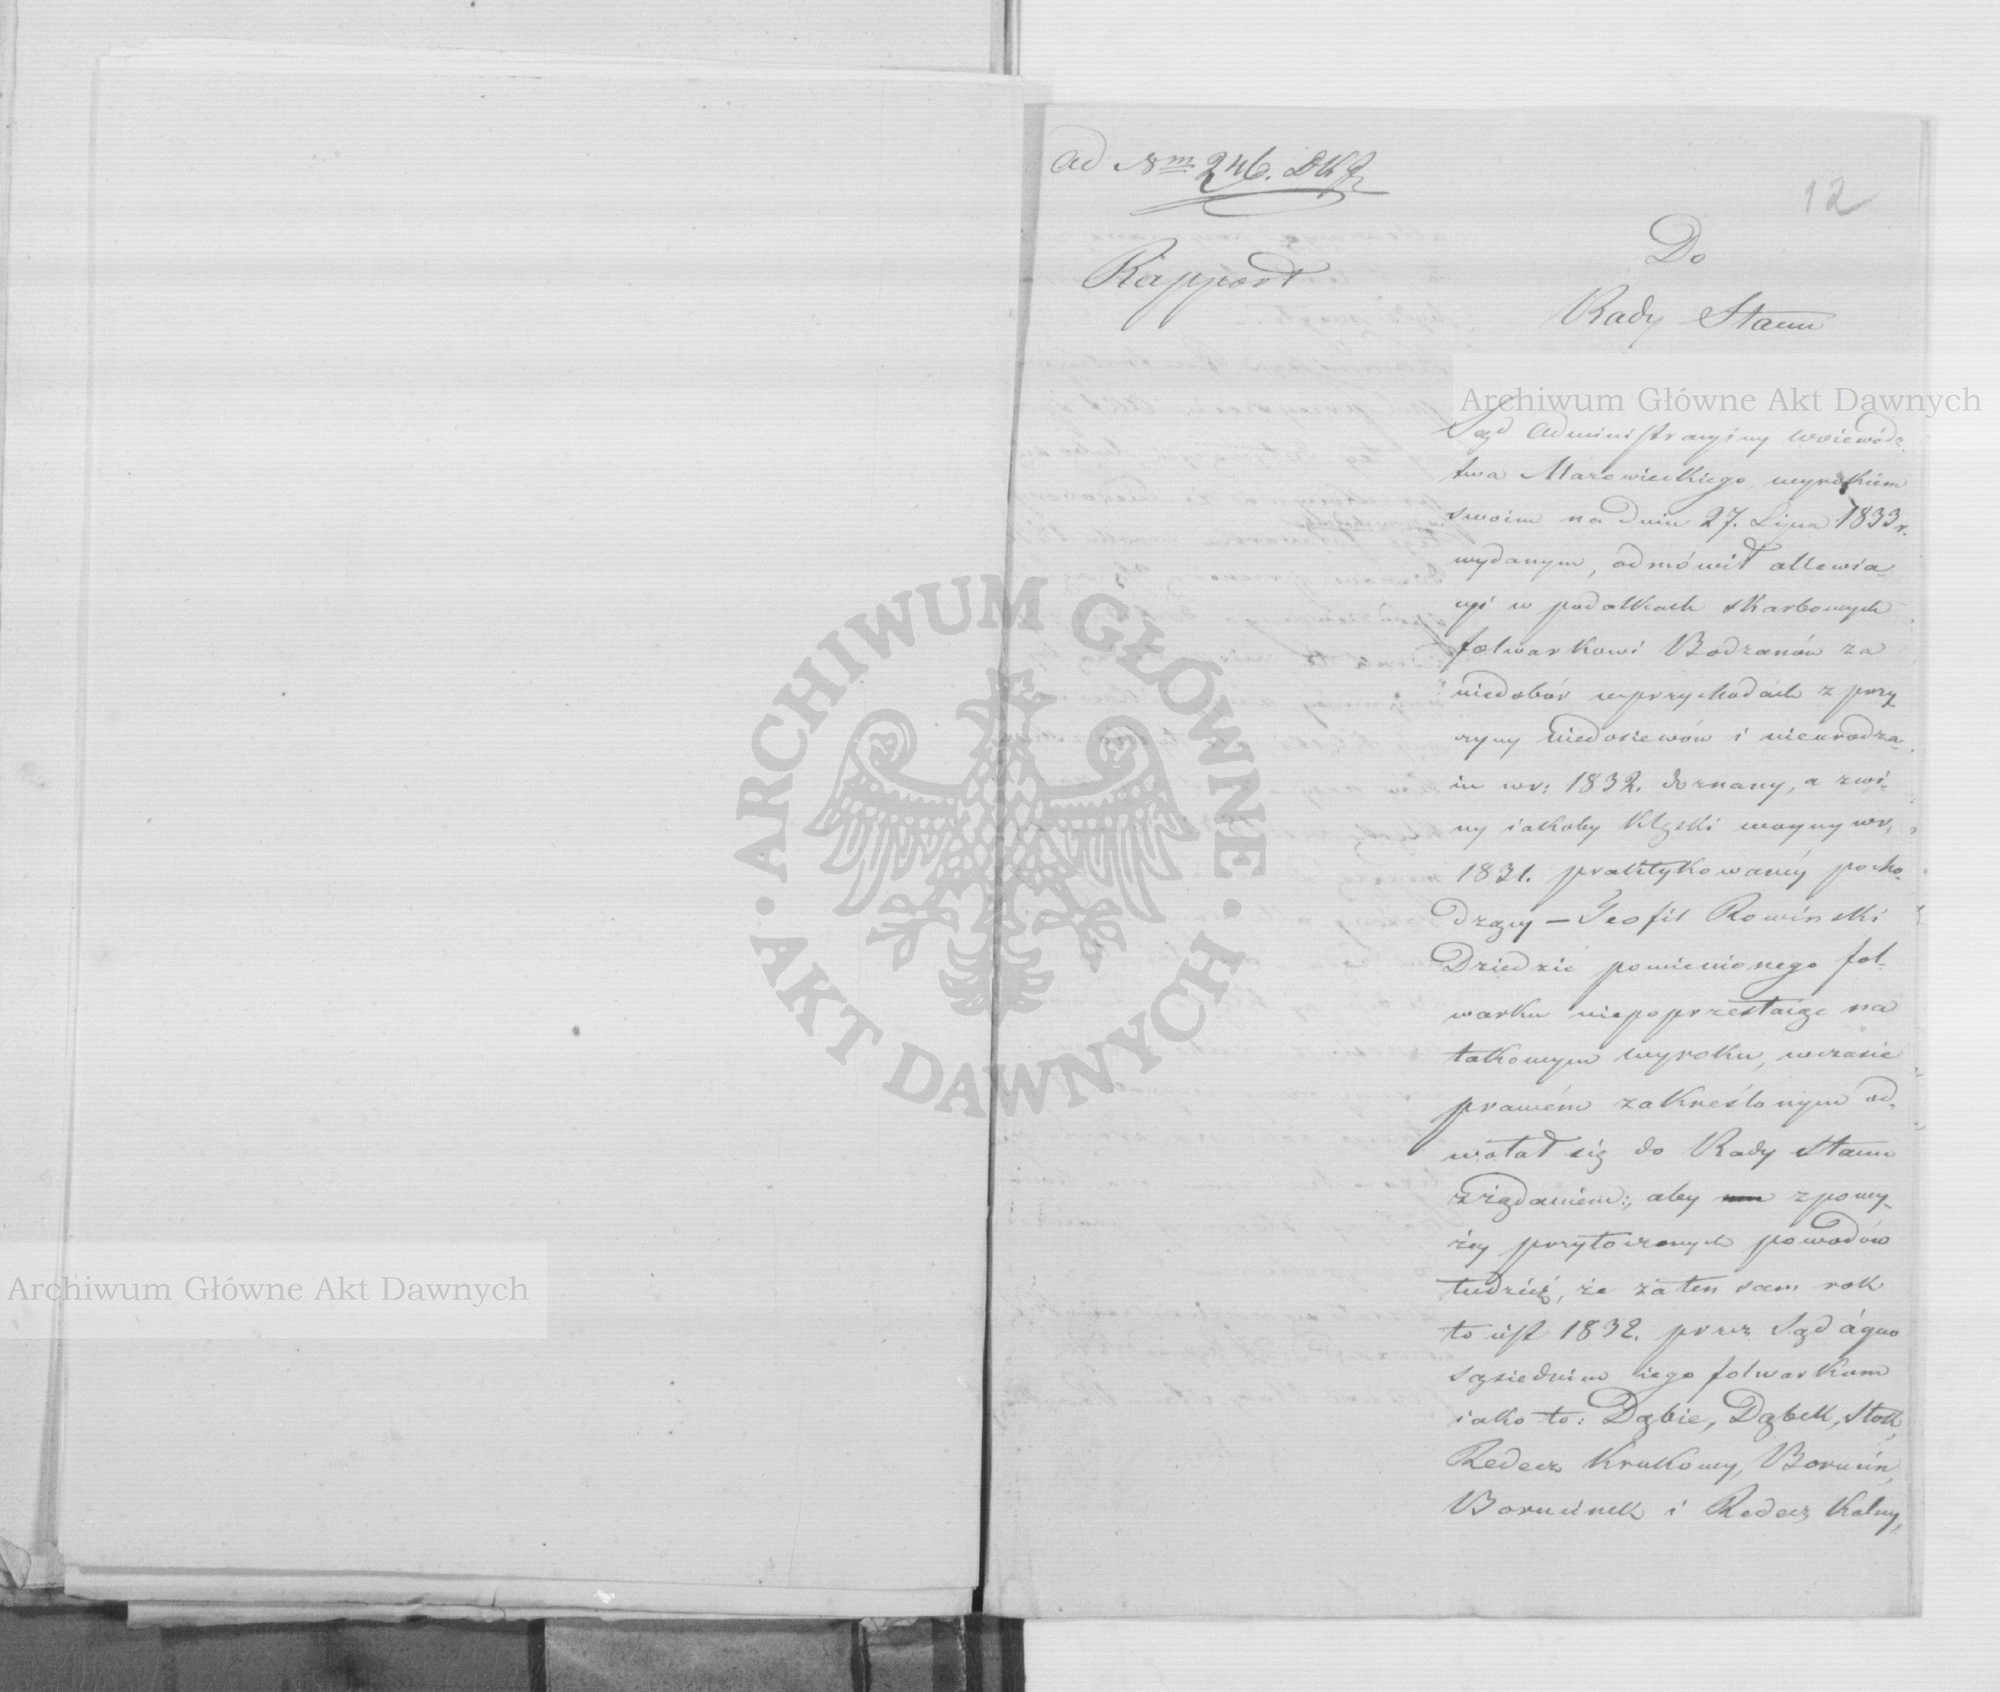 Ad Nrm 246. DKP.
12
Rapport
Do
Rady Stanu
Archiwum Główne Akt Dawnych
Sąd Administracyiny Woiewódz-
twa Mazowieckiego, wyrokiem
swoim na dniu 27. Lipca 1833 r.
wydanym, odmówił allewia-
cyi w podatkach skarbowych
folwarkowi Bodzanów za
niedobór wprzychodach z przy
czyny niedosiewów i nieurodza-
iu wr: 1832. doznany, a zwi-
ny iakoby klęski woyny wr.
1831. praktykowaney pocho-
dzący — Teofil Rowiński
Dziedzic pomienionego fol-
warku niepoprzestaiąc na
takowym wyroku, wczasie
prawem zakreślonym od-
wołał się do Rady Stanu
zżądaniem:, aby zpowy-
żey przytoczonych powodów
tudzież, że za ten sam rok
to iest 1832. przez Sąd águo
sąsiednim iego folwarkom
iako to: Dąbie, Dąbek, Stok,
Redecz Krukowy, Borucin,
Borucinek i Redecz Kalny,
ARCHIWUM GŁÓWNE AKT DAWNYCH
Archiwum Główne Akt Dawnych